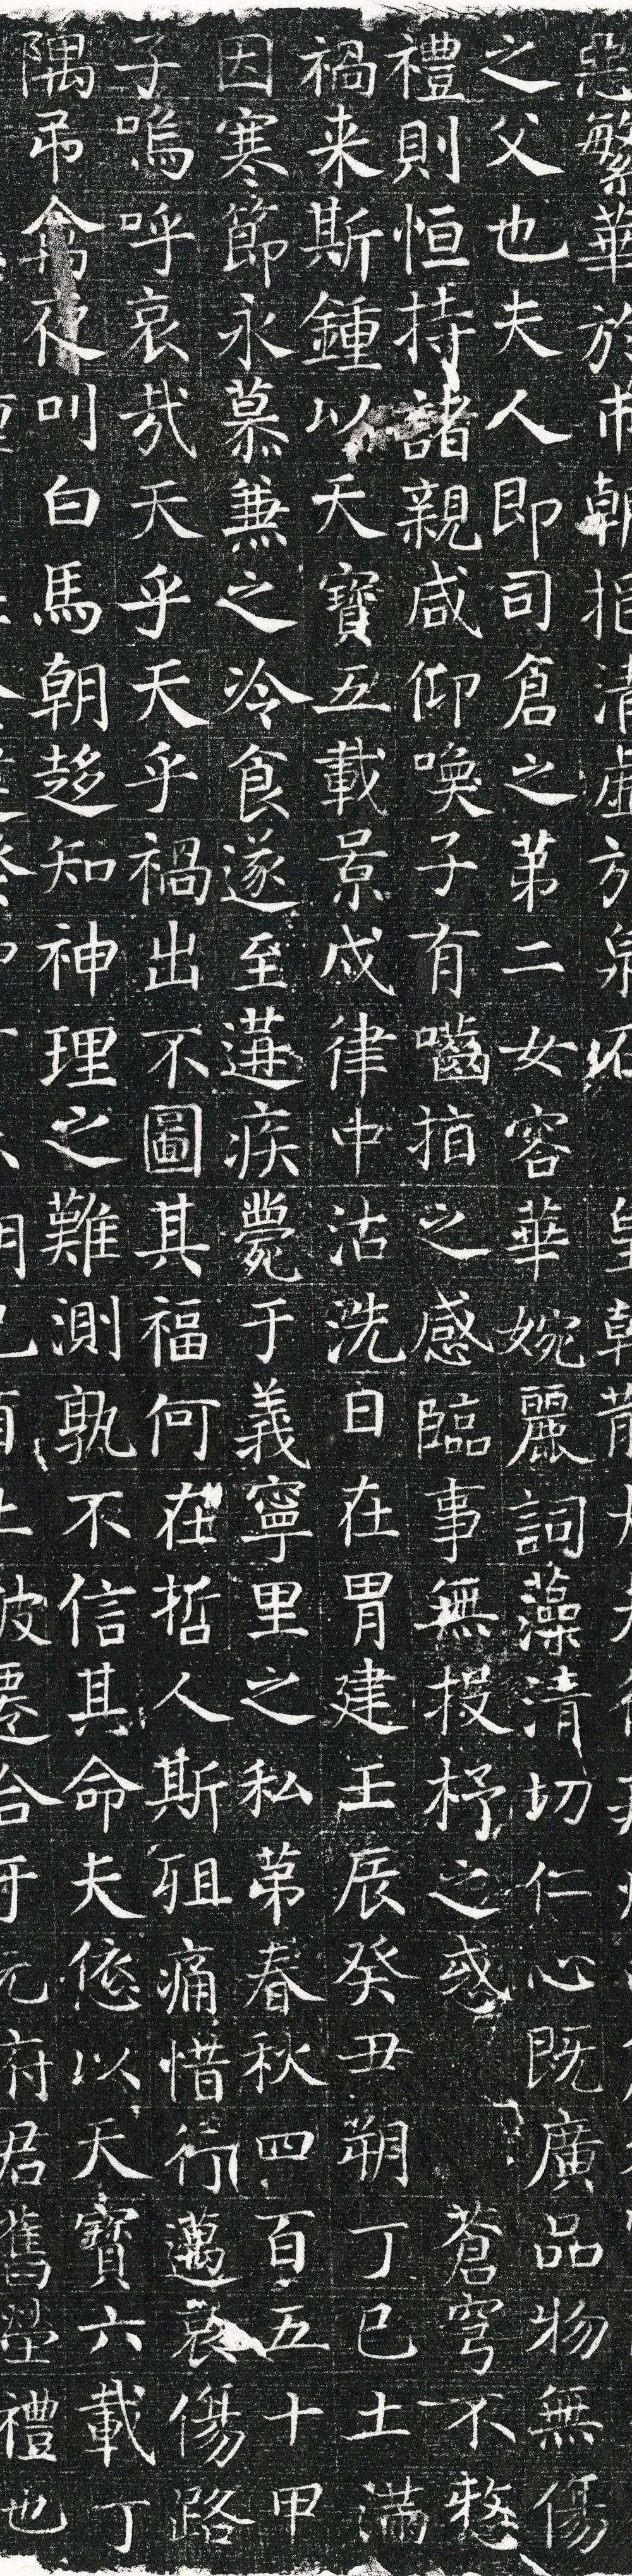 繁華於市朝挹清虛於泉石
之父也夫人即司倉之苐二女容華婉麗詞藻清切仁心既廣品物無傷
禮則恒持諸親咸仰喚子有嚙指之感臨事無投杼之惑 蒼穹不憖
禍来斯鍾以天寶五載景戍律中沽洗日在胃建壬辰癸丑朔丁巳土滿
因寒節永慕兼之冷食遂至遘疾薨于義寧里之私苐春秋四百五十甲
子嗚呼哀哉天乎天乎禍出不圖其福何在哲人斯殂痛惜行邁哀傷路
隅弔禽夜叫白馬朝趍知神理之難測孰不信其命夫以天寶六載丁
府君舊塋禮也